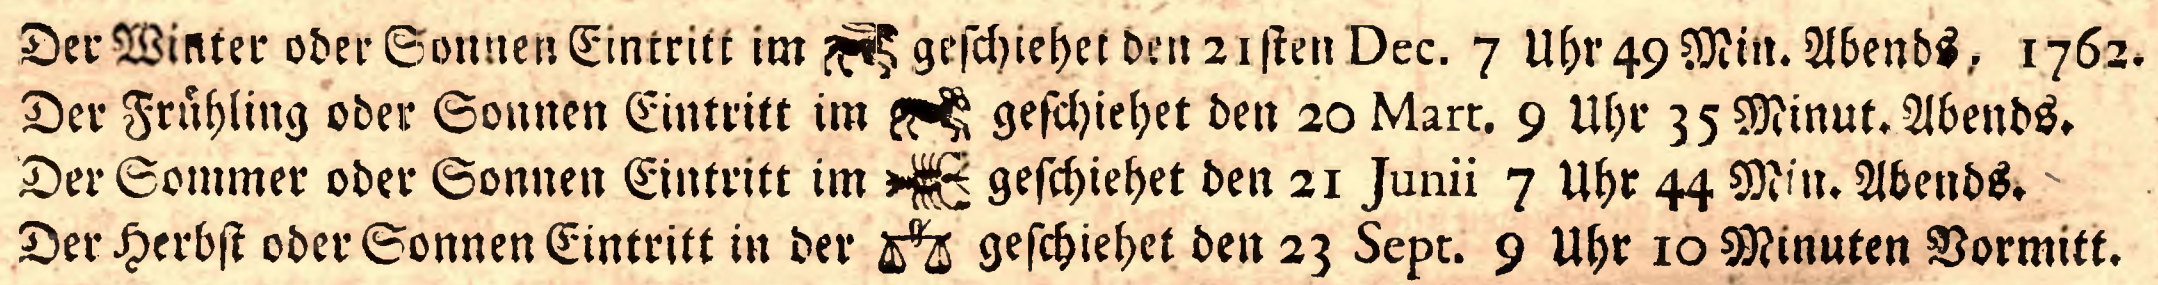 Der Winter oder Sonnen Eintritt im ♑ geſchiehet den 21ſten Dec. 7 Uhr 49 Min. Abends, 1762.
Der Fruͤhling oder Sonnen Eintritt im ♈ geſchiehet den 20 Mart. 9 Uhr 35 Minut. Abends.
Der Sommer oder Sonnen Eintritt im ♋ geſchiehet den 21 Junii 7 Uhr 44 Min. Abends.
Der Herbſt oder Sonnen Eintritt in der ♎ geſchiehet den 23 Sept. 9 Uhr 10 Minuten Vormitt.